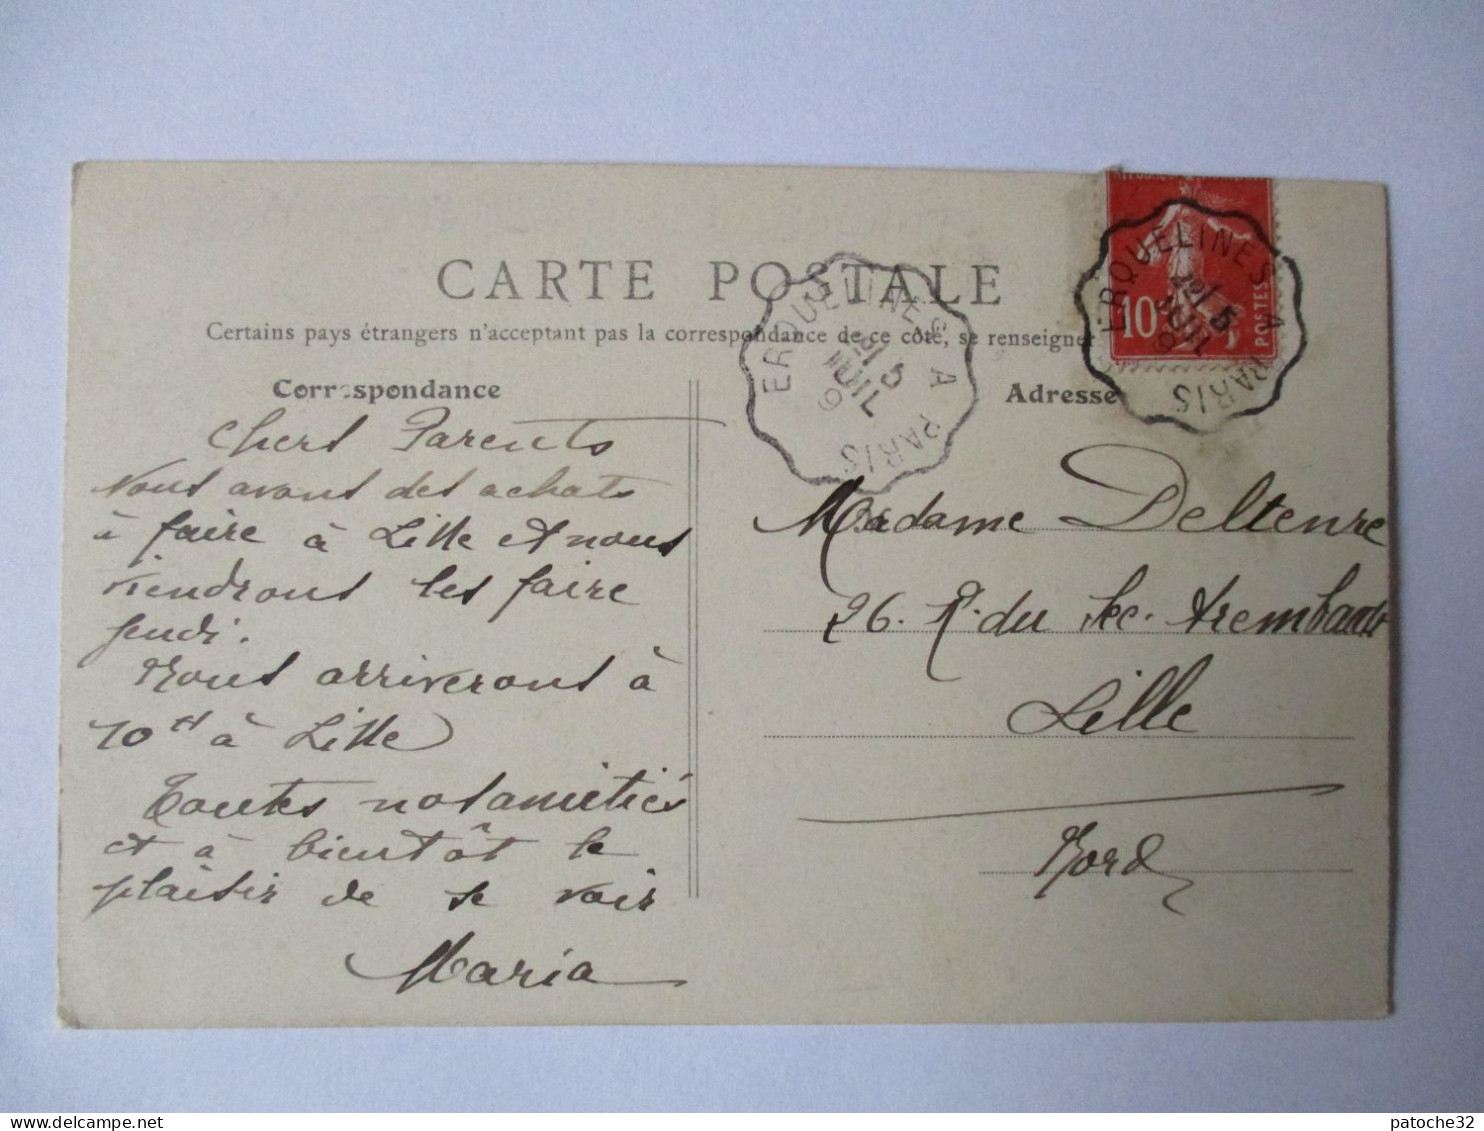 CARTE POSTALE
Certains pays étrangers n'acceptant pas la correspondance de ce côté, se renseigner
Correspondance
Chers Parents
Nous avons des achats
à faire à Lille et nous
viendrons les faire
jeudi.
Nous arriverons à
10 H à Lille
Toutes nos amitiés
et à bientôt le
plaisir de se voir
Maria
ERQUELINES A PARIS
5
JUIL
9
Adresse
10
POSTES
ERQUELINES A PARIS
5
JUIL
Madame Deltenre
26. R. du Sec. Arembault
Lille
Nord
patoche32